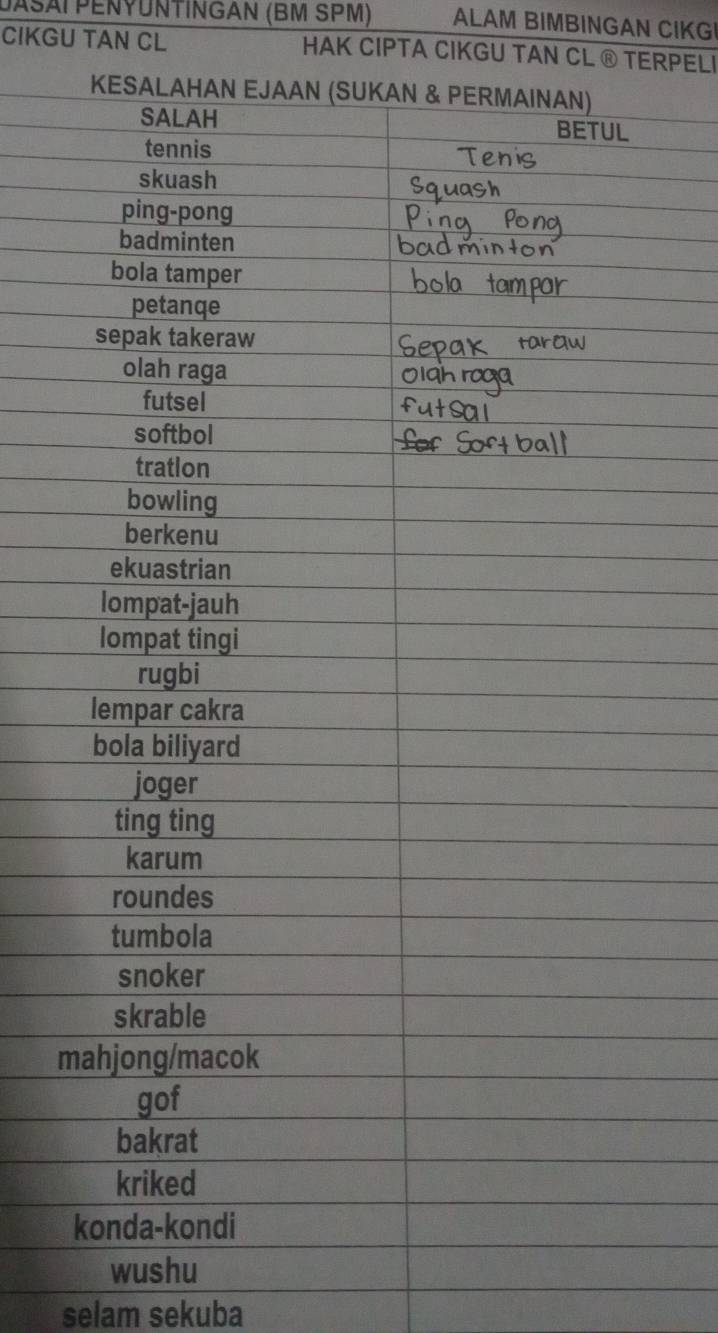 UASAI PENYUNTINGAN (BM SPM) ALAM BIMBINGAN CIKGU
CIKGU TAN CL HAK CIPTA CIKGU TAN CL ® TERPELI
KESALAHAN EJAAN (SUKAN & PERMAINAN)
SALAH BETUL
tennis Tenis
skuash Squash
ping-pong Ping Pong
badminten badminton
bola tamper bola tampar
petanqe
sepak takeraw Sepak raraw
olah raga olahraga
futsel futsal
softbol Sortball
tratlon
bowling
berkenu
ekuastrian
lompat-jauh
lompat tingi
rugbi
lempar cakra
bola biliyard
joger
ting ting
karum
roundes
tumbola
snoker
skrable
mahjong/macok
gof
bakrat
kriked
konda-kondi
wushu
selam sekuba